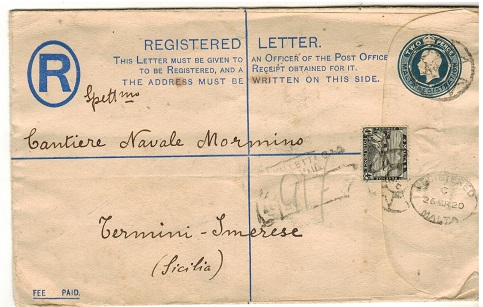 REGISTERED LETTER.
THIS LETTER MUST BE GIVEN TO AN OFFICER OF THE POST OFFICE
TO BE REGISTERED, AND A RECEIPT OBTAINED FOR IT.
THE ADDRESS MUST BE WRITTEN ON THIS SIDE.
R
TWO PENCE
Spett mo
Cantiere Navale Mormino
REGISTERED
C
26 MR 20
MALTA
Termini-Imerese
(Sicilia)
FEE PAID.